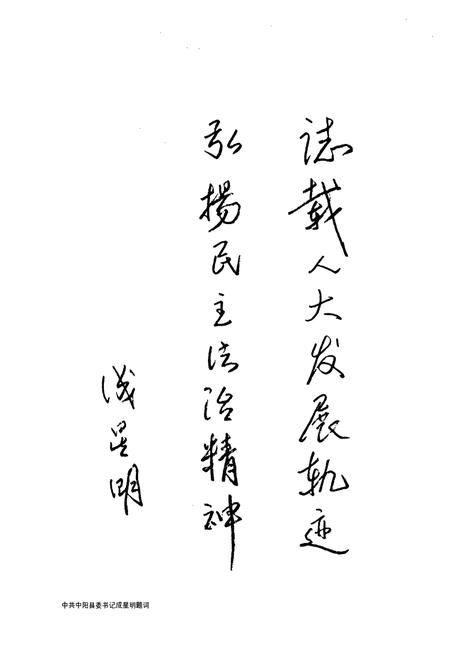 誌载人大发展轨迹
弘揚民主法治精神
成星明
中共中阳县委书记成星明题词